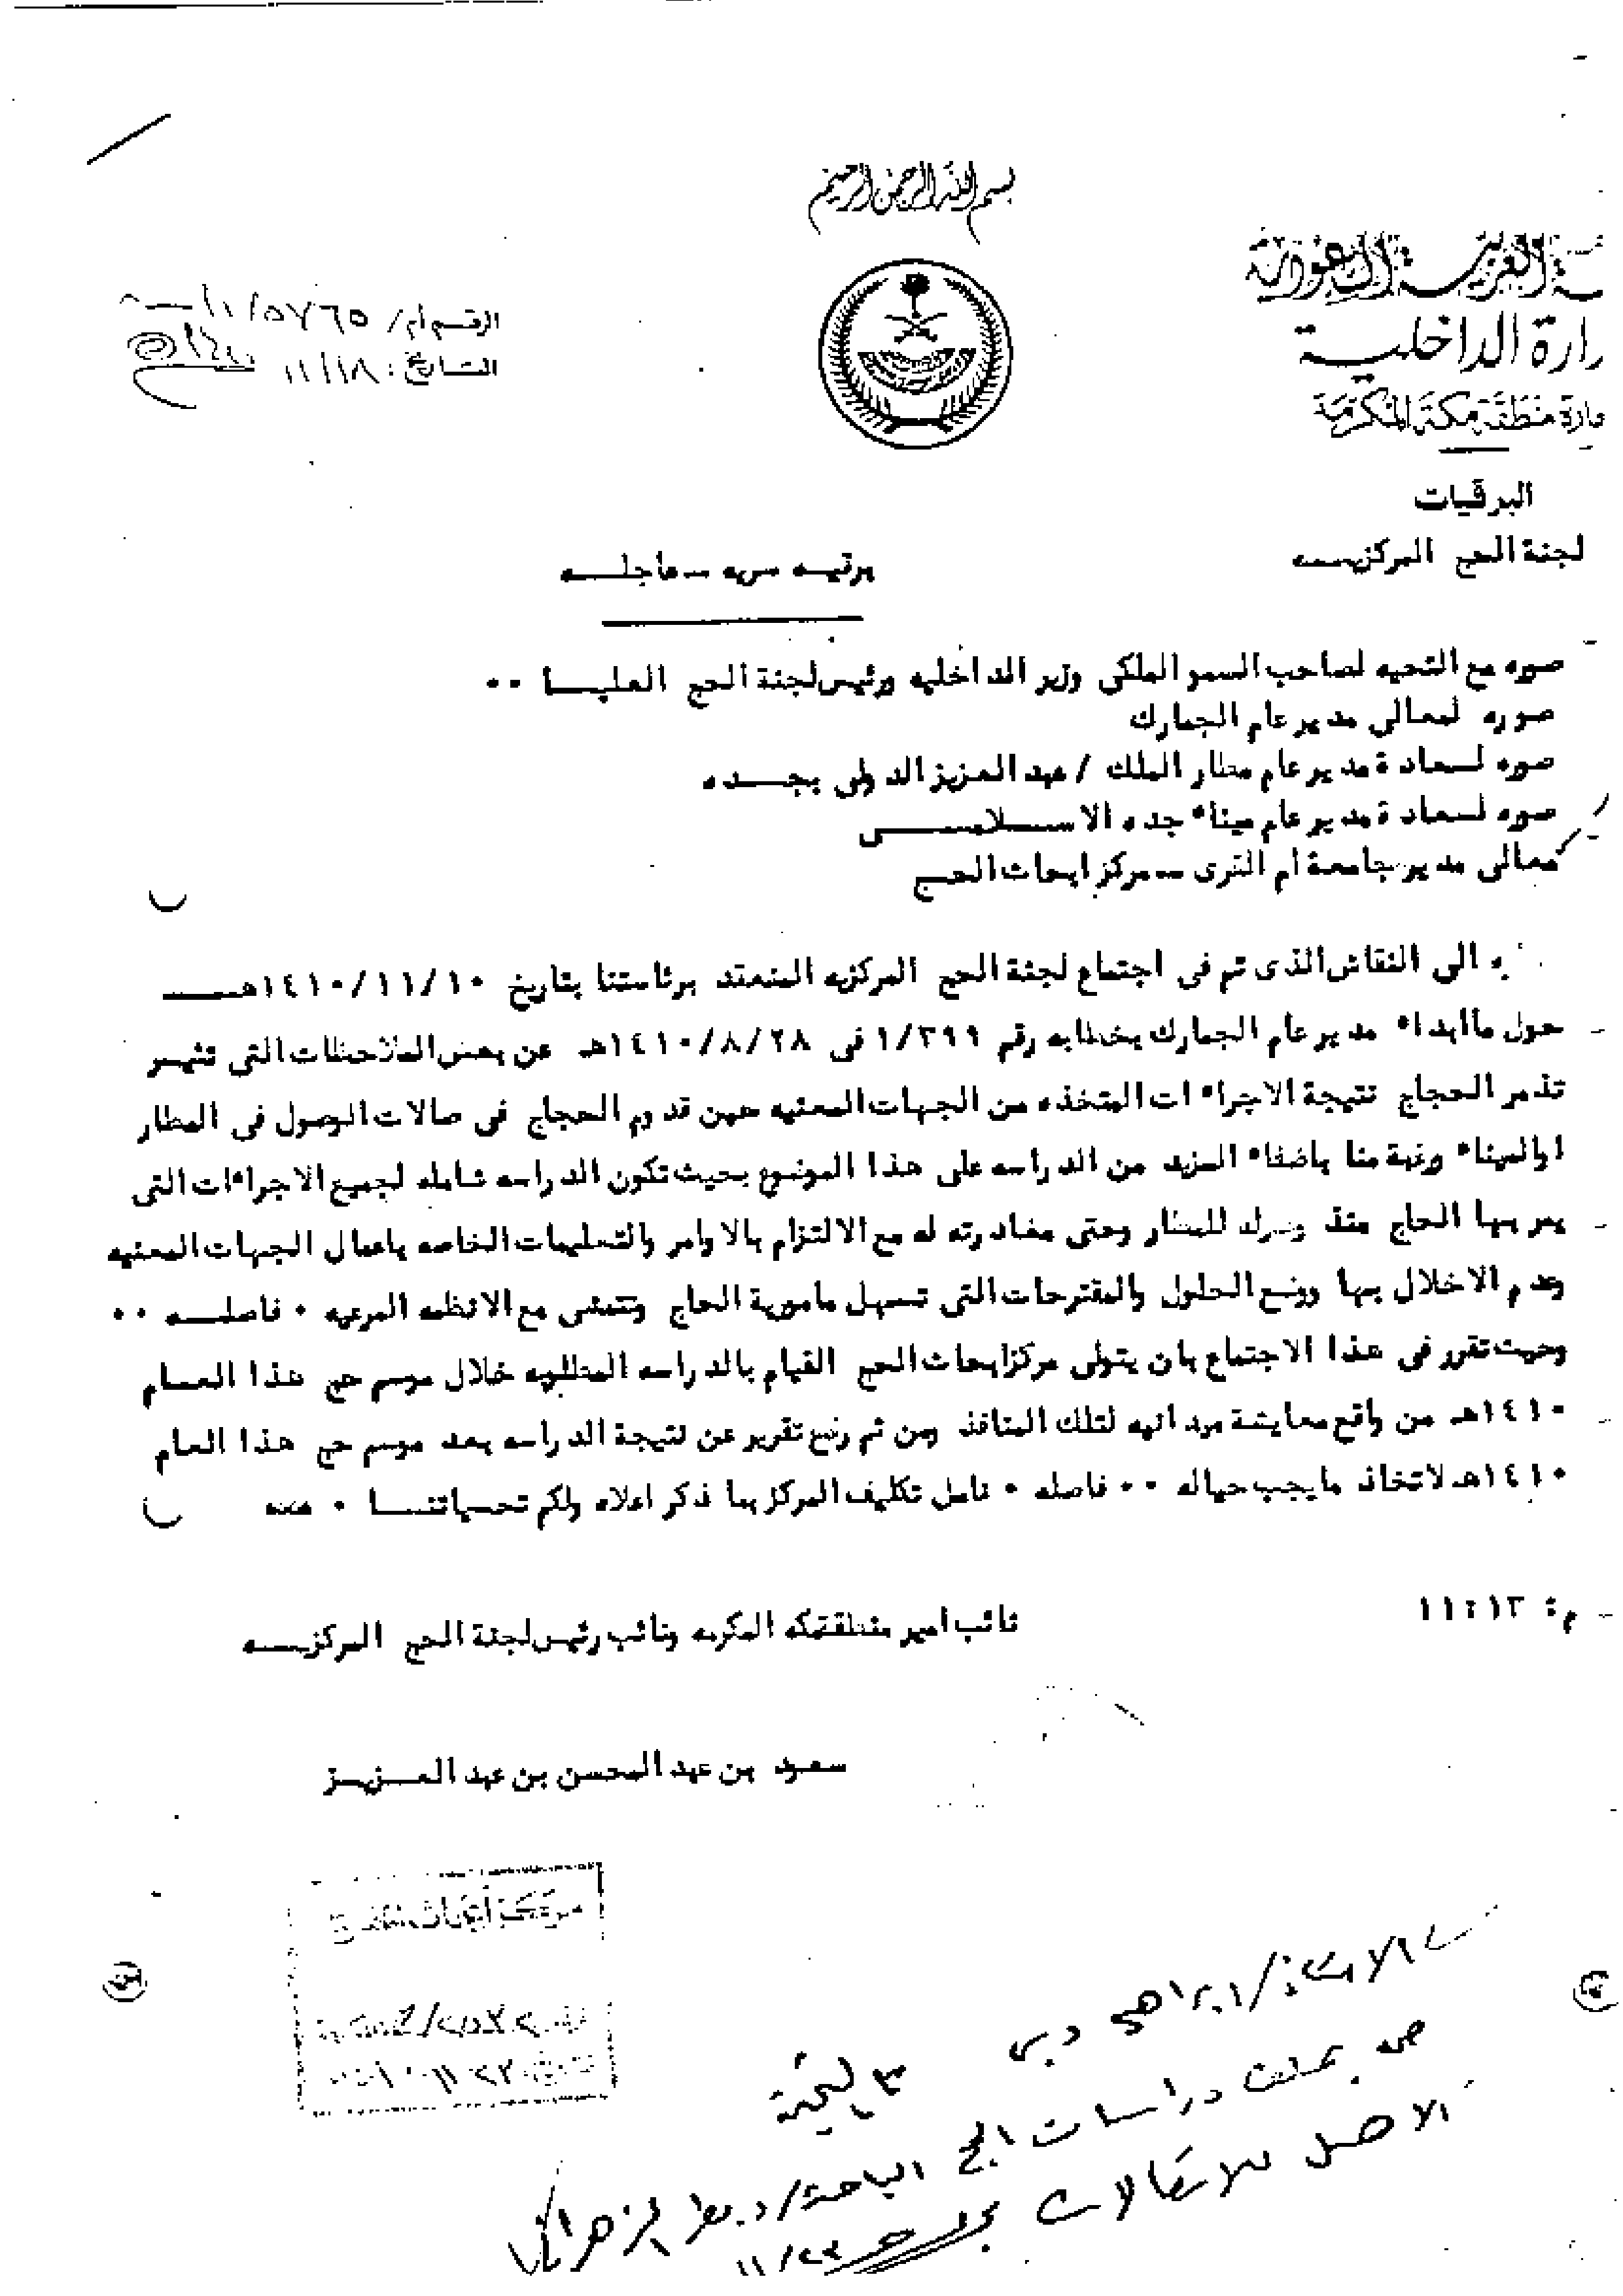 بسم الله الرحمن الرحيم
ـة العربيـــة السعودية
ـزارة الداخليـــة
ـمارة منطقة مكة المكرمة
الرقم أم/ ٥٧٦٥/١
التاريخ: ١١/١٨
البرقيات
لجنة الحج المركزيـــه
برقيـــه سريه ــ عاجلـــه
صوره مع التحيه لصاحب السمو الملكى وزير الداخليه ورئيس لجنة الحج العليـــا ٠٠
صوره لمعالى مدير عام الجمارك
صوره لسعادة مدير عام مطار الملك / عبد العزيز الدولى بجـــده
صوره لسعادة مدير عام ميناء جده الاســـلامـــى
معالى مدير جامعة أم القرى ــ مركز ابحاث الحـــج
ـه الى النقاش الذى تم فى اجتماع لجنة الحج المركزيه المنعقد برئاستنا بتاريخ ١٤١٠/١١/١٠هـــ
حول ماأبداه مدير عام الجمارك بخطابه رقم ١/٣٩٩ فى ١٤١٠/٨/٢٨هـ عن بعض الملاحظات التى تثيـــر
تذمر الحجاج نتيجة الاجراءات المتخذه من الجهات المعنيه حين قدوم الحجاج فى صالات الوصول فى المطار
اوالميناء ورغبة منا باضفاء المزيد من الدراسه على هذا الموضوع بحيث تكون الدراسه شامله لجميع الاجراءات التى
يمر بها الحاج منذ وصوله للمطار وحتى مغادرته له مع الالتزام بالاوامر والتعليمات الخاصه باعمال الجهات المعنيه
وعدم الاخلال بها ووضع الحلول والمقترحات التى تسهل مامورية الحاج وتتمشى مع الانظمه المرعيه ٠ فاصلـــه ٠٠
وحيث تقرر فى هذا الاجتماع بان يتولى مركز ابحاث الحج القيام بالدراسه المطلوبه خلال موسم حج هذا العـــام
١٤١٠هـ من واقع معايشة ميدانيه لتلك المنافذ ومن ثم رفع تقرير عن نتيجة الدراسه بعد موسم حج هذا العام
١٤١٠هـ لاتخاذ مايجب حياله ٠٠ فاصله ٠ نامل تكليف المركز بما ذكر اعلاه ولكم تحياتنـــا ٠
م: ١١:١٣
نائب امير منطقة مكه المكرمه ونائب رئيس لجنة الحج المركزيـــه
سعود بن عبد المحسن بن عبد العـــزيـــز
مركز أبحاث الحج
الاستاذ/ ابراهيم
صه بملف دراسات الحج الباحث/ د. الزهراني
الاصل للاتصالات
١١/٢٣